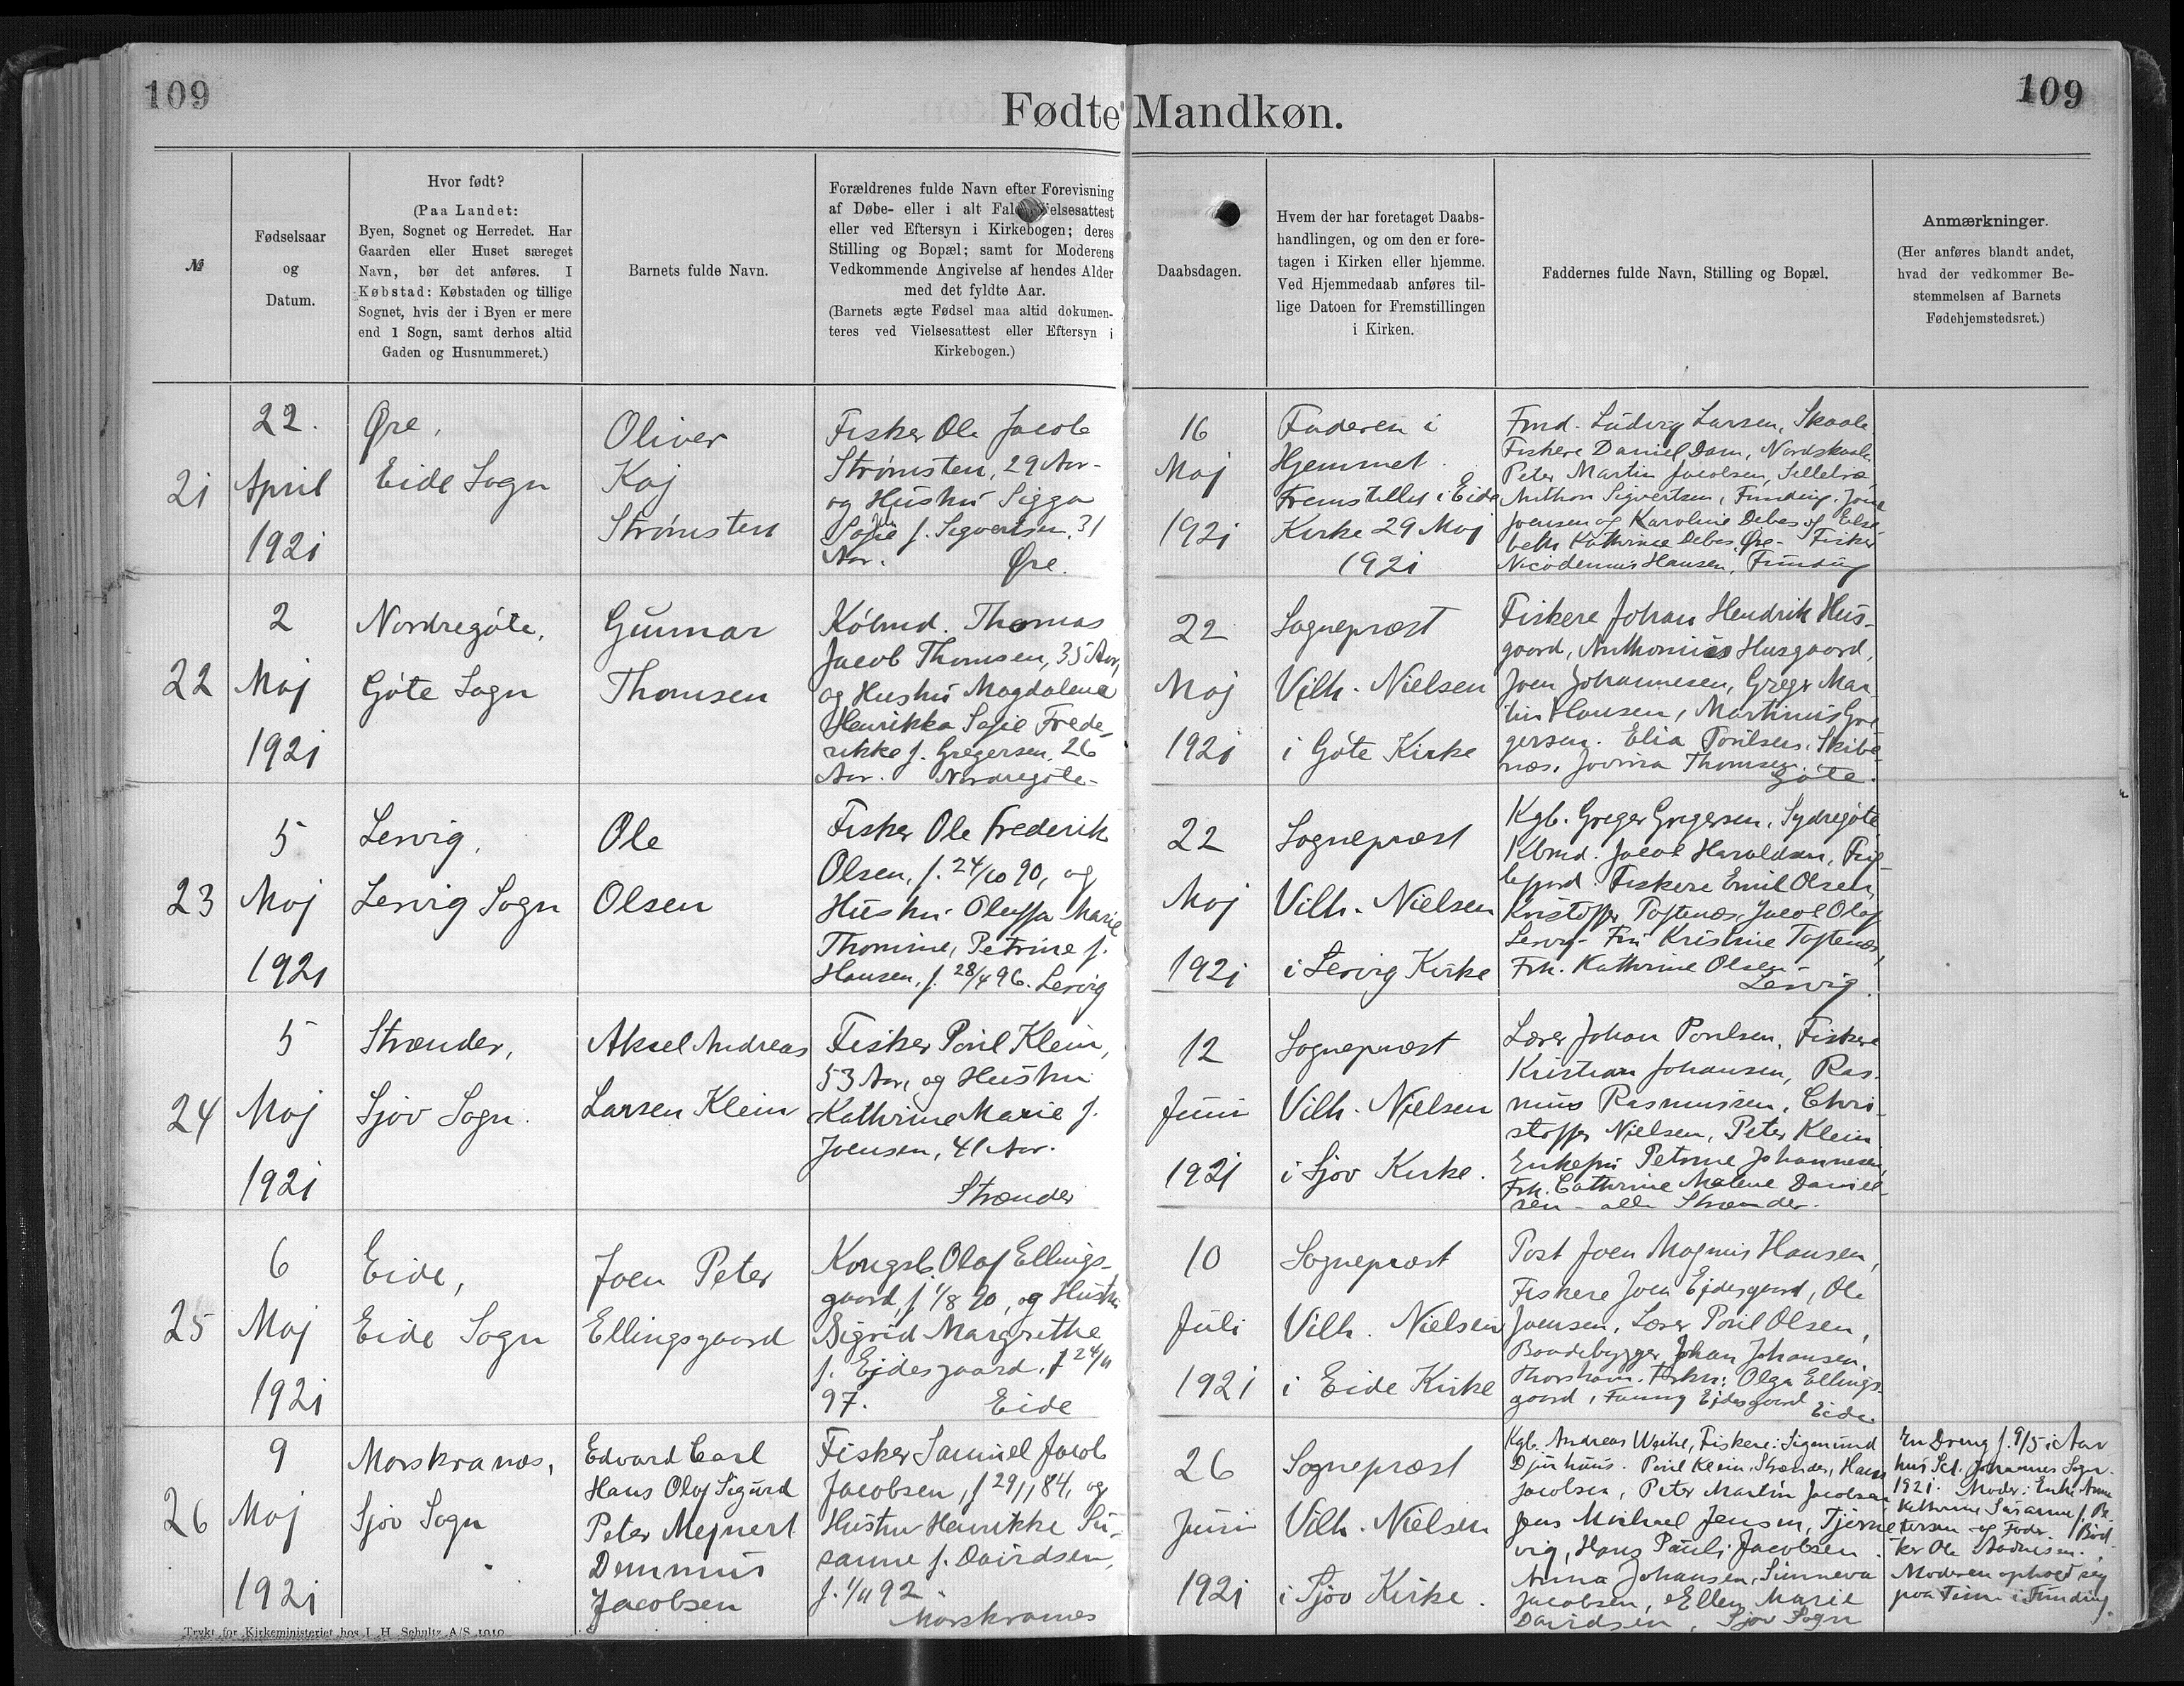 109
109
Fødte Mandkøn.
№
Fødselsaar
og
Datum.
Hvor født?
(Paa Landet:
Byen, Sognet og Herredet. Har
Gaarden eller Huset særeget
Navn, bør det anføres. I
Købstad: Købstaden og tillige
Sognet, hvis der i Byen er mere
end 1 Sogn, samt derhos altid
Gaden og Husnummeret.)
Barnets fulde Navn.
Forældrenes fulde Navn efter Forevisning
af Døbe- eller i alt Fald Vielsesattest
eller ved Eftersyn i Kirkebogen; deres
Stilling og Bopæl; samt for Moderens
Vedkommende Angivelse af hendes Alder
med det fyldte Aar.
(Barnets ægte Fødsel maa altid dokumen-
teres ved Vielsesattest eller Eftersyn i
Kirkebogen.)
Daabsdagen.
Hvem der har foretaget Daabs-
handlingen, og om den er fore-
tagen i Kirken eller hjemme.
Ved Hjemmedaab anføres til-
lige Datoen for Fremstillingen
i Kirken.
Faddernes fulde Navn, Stilling og Bopæl.
Anmærkninger.
(Her anføres blandt andet,
hvad der vedkommer Be-
stemmelsen af Barnets
Fødehjemstedsret.)
21
22.
April
1921
Øre,
Eide Sogn
Oliver
Kaj
Strømsten
Fisker Ole Jacob
Strømsten, 29 Aar-
og Hustru Sigga
Sofie f. Sigvertsen, 31
Aar. Øre.
16
Maj
1921
Faderen i
Hjemmet.
Fremstillet i Eide
Kirke 29 Maj
1921
Fmd. Ludvig Larsen, Skaale
Fiskere Daniel Dam, Nordskaale
Peter Martin Jacobsen, Selletræ
Anthon Sigvertsen, Funding,
Joensen og Karoline Debes og Else-
beth Kathrine Debes, Øre- Fisker
Nicodemus Hansen, Funding
22
2
Maj
1921
Nordregöte,
Göte Sogn
Gunnar
Thomsen
Köbmd. Thomas
Jacob Thomsen, 35 Aar,
og Hustru Magdalena
Henrikka Sofie Frede-
rikke f. Gregersen, 26
Aar. Nordregöte-
22
Maj
1921
Sognepræst
Vilh. Nielsen
i Göte Kirke
Fiskere Johan Hendrik Hus-
gaard, Anthonius Husgaard,
Joen Johannesen, Greger Mar-
tin Hansen, Martinus Gre
gersen. Elia Poulsen, Skibe-
næs, Jovina Thomsen,
Göte.
23
5
Maj
1921
Lervig,
Lervig Sogn
Ole
Olsen
Fisker Ole Frederik
Olsen, f. 24/10 90, og
Hustru Oluffa Marie
Thomine, Petrine f.
Hansen, f. 28/4 96. Lervig
22
Maj
1921
Sognepræst
Vilh. Nielsen
i Lervig Kirke
Kgb. Greger Gregersen, Sydregöte
Kbmd. Jacob Haraldsen, Fug-
lefjord. Fiskere Emil Olsen,
Kristoffer Toftenæs, Jacob Olaf
Lervig- Fru Kristine Toftenæs,
Frk. Kathrine Olsen-
Lervig.
24
5
Maj
1921
Strænder,
Sjov Sogn.
Aksel Andreas
Larsen Klein
Fisker Poul Klein,
53 Aar, og Hustru
Kathrine Marie f.
Joensen, 41 Aar.
Strænder
12
Juni
1921
Sognepræst
Vilh. Nielsen
i Sjov Kirke.
Lærer Johan Poulsen, Fiskere
Kristian Johansen, Ras-
mus Rasmussen, Chri-
stoffer Nielsen, Peter Klein
Enkefru Petrine Johannesen,
Frk. Cathrine Malene Daniel-
sen - alle Strænder.
25
6
Maj
1921
Eide,
Eide Sogn
Joen Peter
Ellingsgaard
Kongsb. Olaf Ellings-
gaard, f. 1/8 90, og Hustru
Sigrid Margrethe
f. Ejdesgaard, f 24/11
97. Eide
10
Juli
1921
Sognepræst
Vilh. Nielsen
i Eide Kirke
Post Joen Magnus Hansen,
Fiskere Joen Ejdesgaard, Ole
Joensen, Lærer Poul Olsen,
Baadebygger Johan Johansen,
Thorshavn. Frkn: Olga Ellings-
gaard, Fanny Ejdesgaard
Eide.
26
9
Maj
1921
Morskranæs,
Sjov Sogn
Edvard Carl
Hans Olaf Sigurd
Peter Mejnert
Demmus
Jacobsen
Fisker Samuel Jacob
Jacobsen, f 29/1 84, og
Hustru Henrikke Su-
sanne f. Davidsen,
f. 1/11 92.
Morskranæs
26
Juni
1921
Sognepræst
Vilh. Nielsen
i Sjov Kirke.
Kgb. Andreas Weihe, Fiskere: Sigmund
Djurhuus. Poul Klein, Strænder, Hans
Jacobsen, Peter Martin Jacobsen
Jens Michael Jensen, Tjørne-
vig, Hans Pauli Jacobsen.
Anna Johansen, Sunneva
Jacobsen, Ellen Marie
Davidsen, Sjov Sogn
En Dreng f. 9/5 i Aar
hus Sct. Johannes Sogn.
1921. Moder: Enke Anna
Kathrine Susanne f. Pe-
tersen og Fader. Bød-
ker Ole
Moderen ophold sig
paa Time i Funding.
Trykt for Kirkeministeriet hos J. H. Schultz A/S 1919